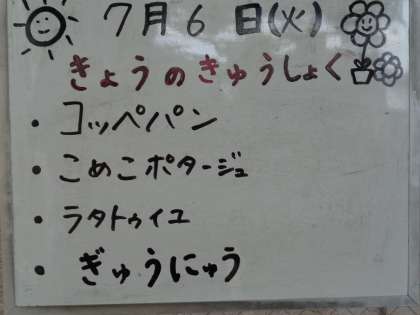 7月6日(火)
きょうのきゅうしょく
・コッペパン
・こめこポタージュ
・ラタトゥイユ
・ぎゅうにゅう